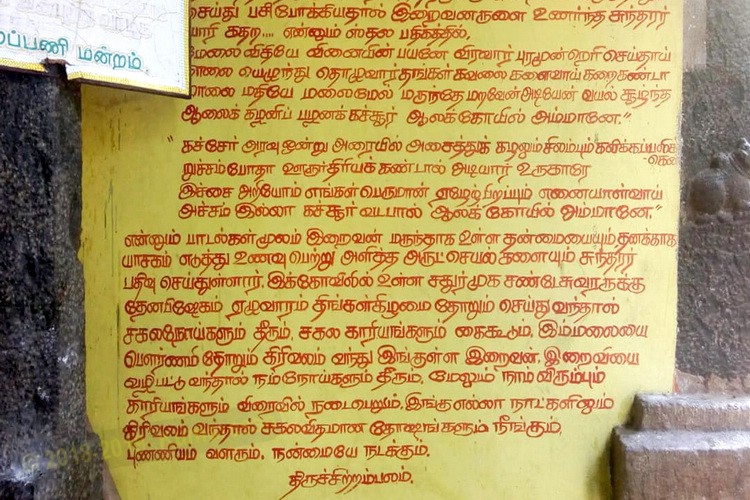 ப்பணி மன்றம்.
செய்து பசிபோக்கியதால் இறைவனருளை உணர்ந்த சுந்தரர்
கதை.... என்னும் ஸ்தல பதிகத்தில்,
மேலை விதியே வினையின் பயனே விரவார் புரமூன்றெரி செய்தாய்
காலை யெழுந்து தொழுவார் தங்கள் கவலை களைவாய் கறைகண்டா
மாலை மதியே மலைமேல் மருந்தே மறவேன் அடியேன் வயல் சூழ்ந்த
ஆலைக் கழனிப் பழனக் கச்சூர் ஆலக்கோயில் அம்மானே."
" கச்சேர் அரவு ஒன்று அரையில் அசைத்துக் கழலும் சிலம்பும் கலிக்கப்பலிக்
-கென
றுச்சம்போதா ஊரூர்திரியக் கண்டால் அடியார் உருகாரே
இச்சை அறியோம் எங்கள் பெருமான் ஏழேழ்பிறப்பும் எனையாள்வாய்
அச்சம் இல்லா கச்சூர் வடபால் ஆலக் கோயில் அம்மானே."
என்னும் பாடல்கள் மூலம் இறைவன் மருந்தாக உள்ள தன்மையையும் தனக்காக
யாசகம் எடுத்து உணவு பெற்று அளித்த அருட்செயல்களையும் சுந்தரர்
பதிவு செய்துள்ளார். இக்கோவிலில் உள்ள சதுர்முக சண்டேசுவரருக்கு
தேனபிஷேகம் ஏழுவாரம் திங்கள்கிழமை தோறும் செய்து வந்தால்
சகலநோய்களும் தீரும், சகல காரியங்களும் கைகூடும், இம்மலையை
பௌர்ணமி தோறும் கிரிவலம் வந்து இங்குள்ள இறைவன், இறைவியை
வழிபட்டு வந்தால் நம்நோய்களும் தீரும், மேலும் நாம் விரும்பும்
காரியங்களும் விரைவில் நடைபெறும், இங்கு எல்லா நாட்களிலும்
கிரிவலம் வந்தால் சகலவிதமான தோஷங்களும் நீங்கும்,
புண்ணியம் வளரும், நன்மையே நடக்கும்.
திருச்சிற்றம்பலம்.